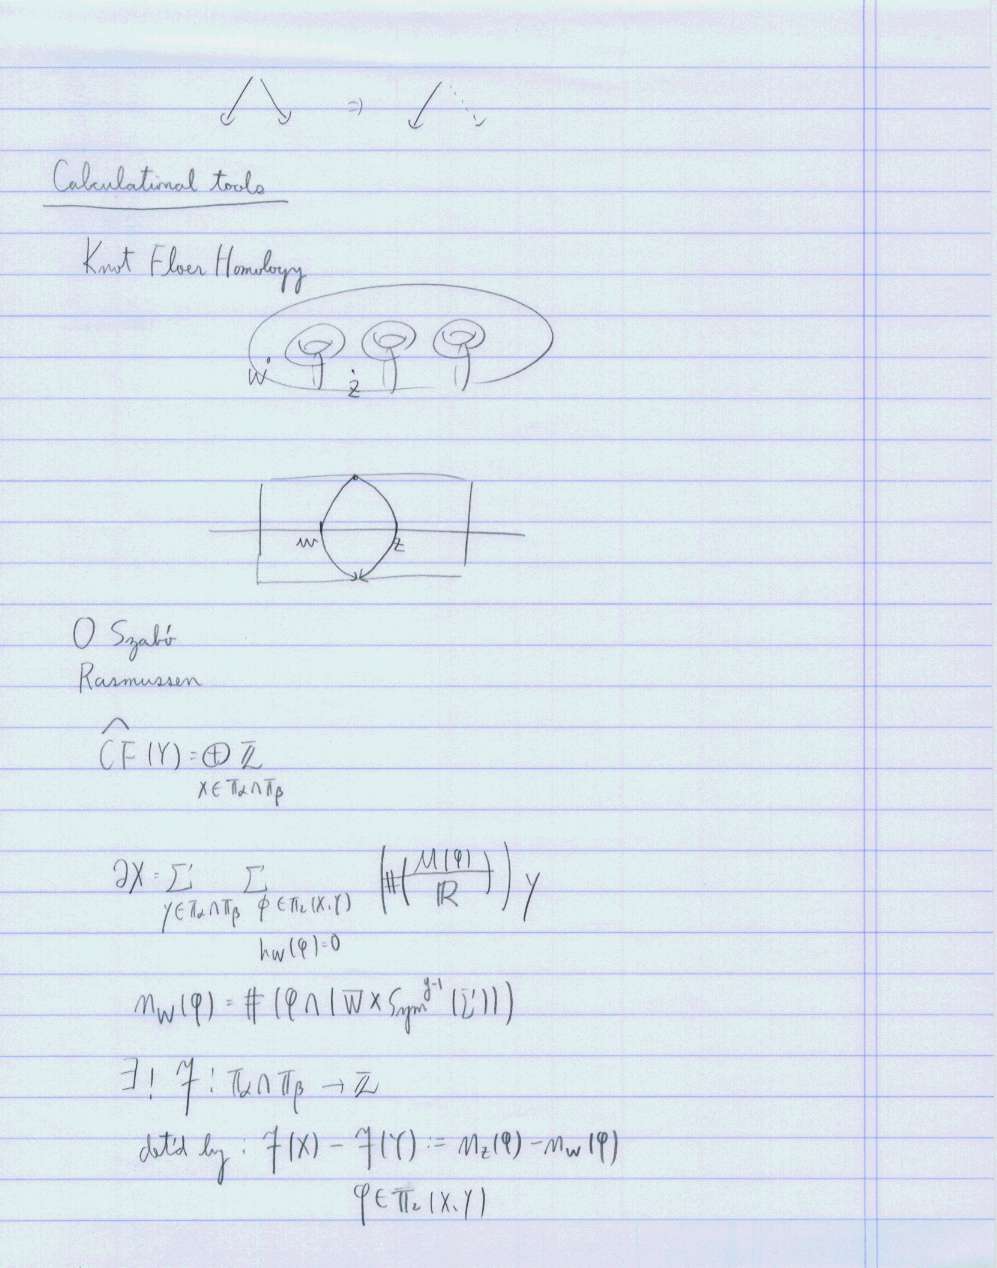 ⇒
Calculational tools
Knot Floer Homology
W Z
w z
O Szabó
Rasmussen
\widehat{CF}(Y) = ⊕ ℤ
x ∈ 𝕋α ∩ 𝕋β
∂X = Σ Σ (#(M(φ)/ℝ)) y
y ∈ 𝕋α ∩ 𝕋β φ ∈ π₂(X,Y)
n_W(φ) = 0
n_W(φ) = # (φ ∩ (W × Sym^{g-1}(Σ)))
∃! F : 𝕋α ∩ 𝕋β → ℤ
det'd by : F(X) − F(Y) := n_z(φ) − n_w(φ)
φ ∈ π₂(X,Y)